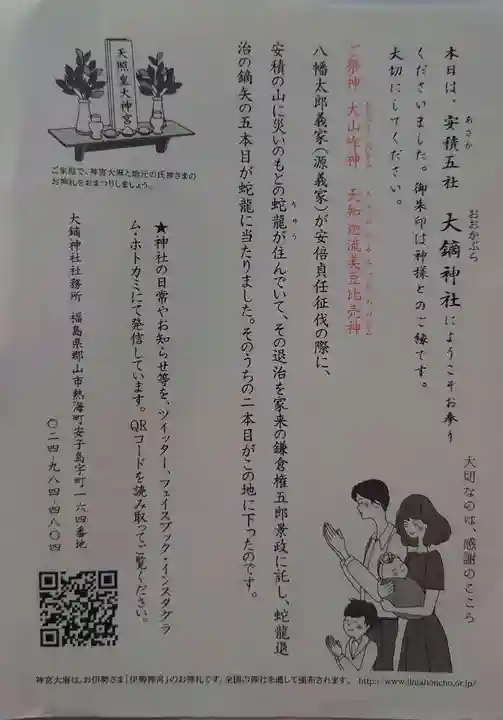 本日は、安積五社 大鏑神社にようこそお参り
あさか
おおかぶら
くださいました。御朱印は神様とのご縁です。
大切にしてください。
ご祭神 大山咋神 天知迦流美豆比売神
八幡太郎義家(源義家)が安倍貞任征伐の際に、
安積の山に災いのもとの蛇龍が住んでいて、その退治を家来の鎌倉権五郎景政に託し、蛇龍退
りゅう
治の鏑矢の五本目が蛇龍に当たりました。そのうちの二本目がこの地に下ったのです。
大切なのは、感謝のこころ
天照皇大神宮
ご家庭で、神宮大麻と地元の氏神さまの
お神札をおまつりしましょう。
★神社の日常やお知らせ等を、ツイッター、フェイスブック・インスタグラ
ム・ホトカミにて発信しています。QRコードを読み取ってご覧ください。
大鏑神社社務所 福島県郡山市熱海町安子島字町一六四番地
〇二四-九八四-四八〇四
神宮大麻は、お伊勢さま「伊勢神宮」のお神札です。全国の神社を通して頒布されます。 http://www.jinjahoncho.or.jp/